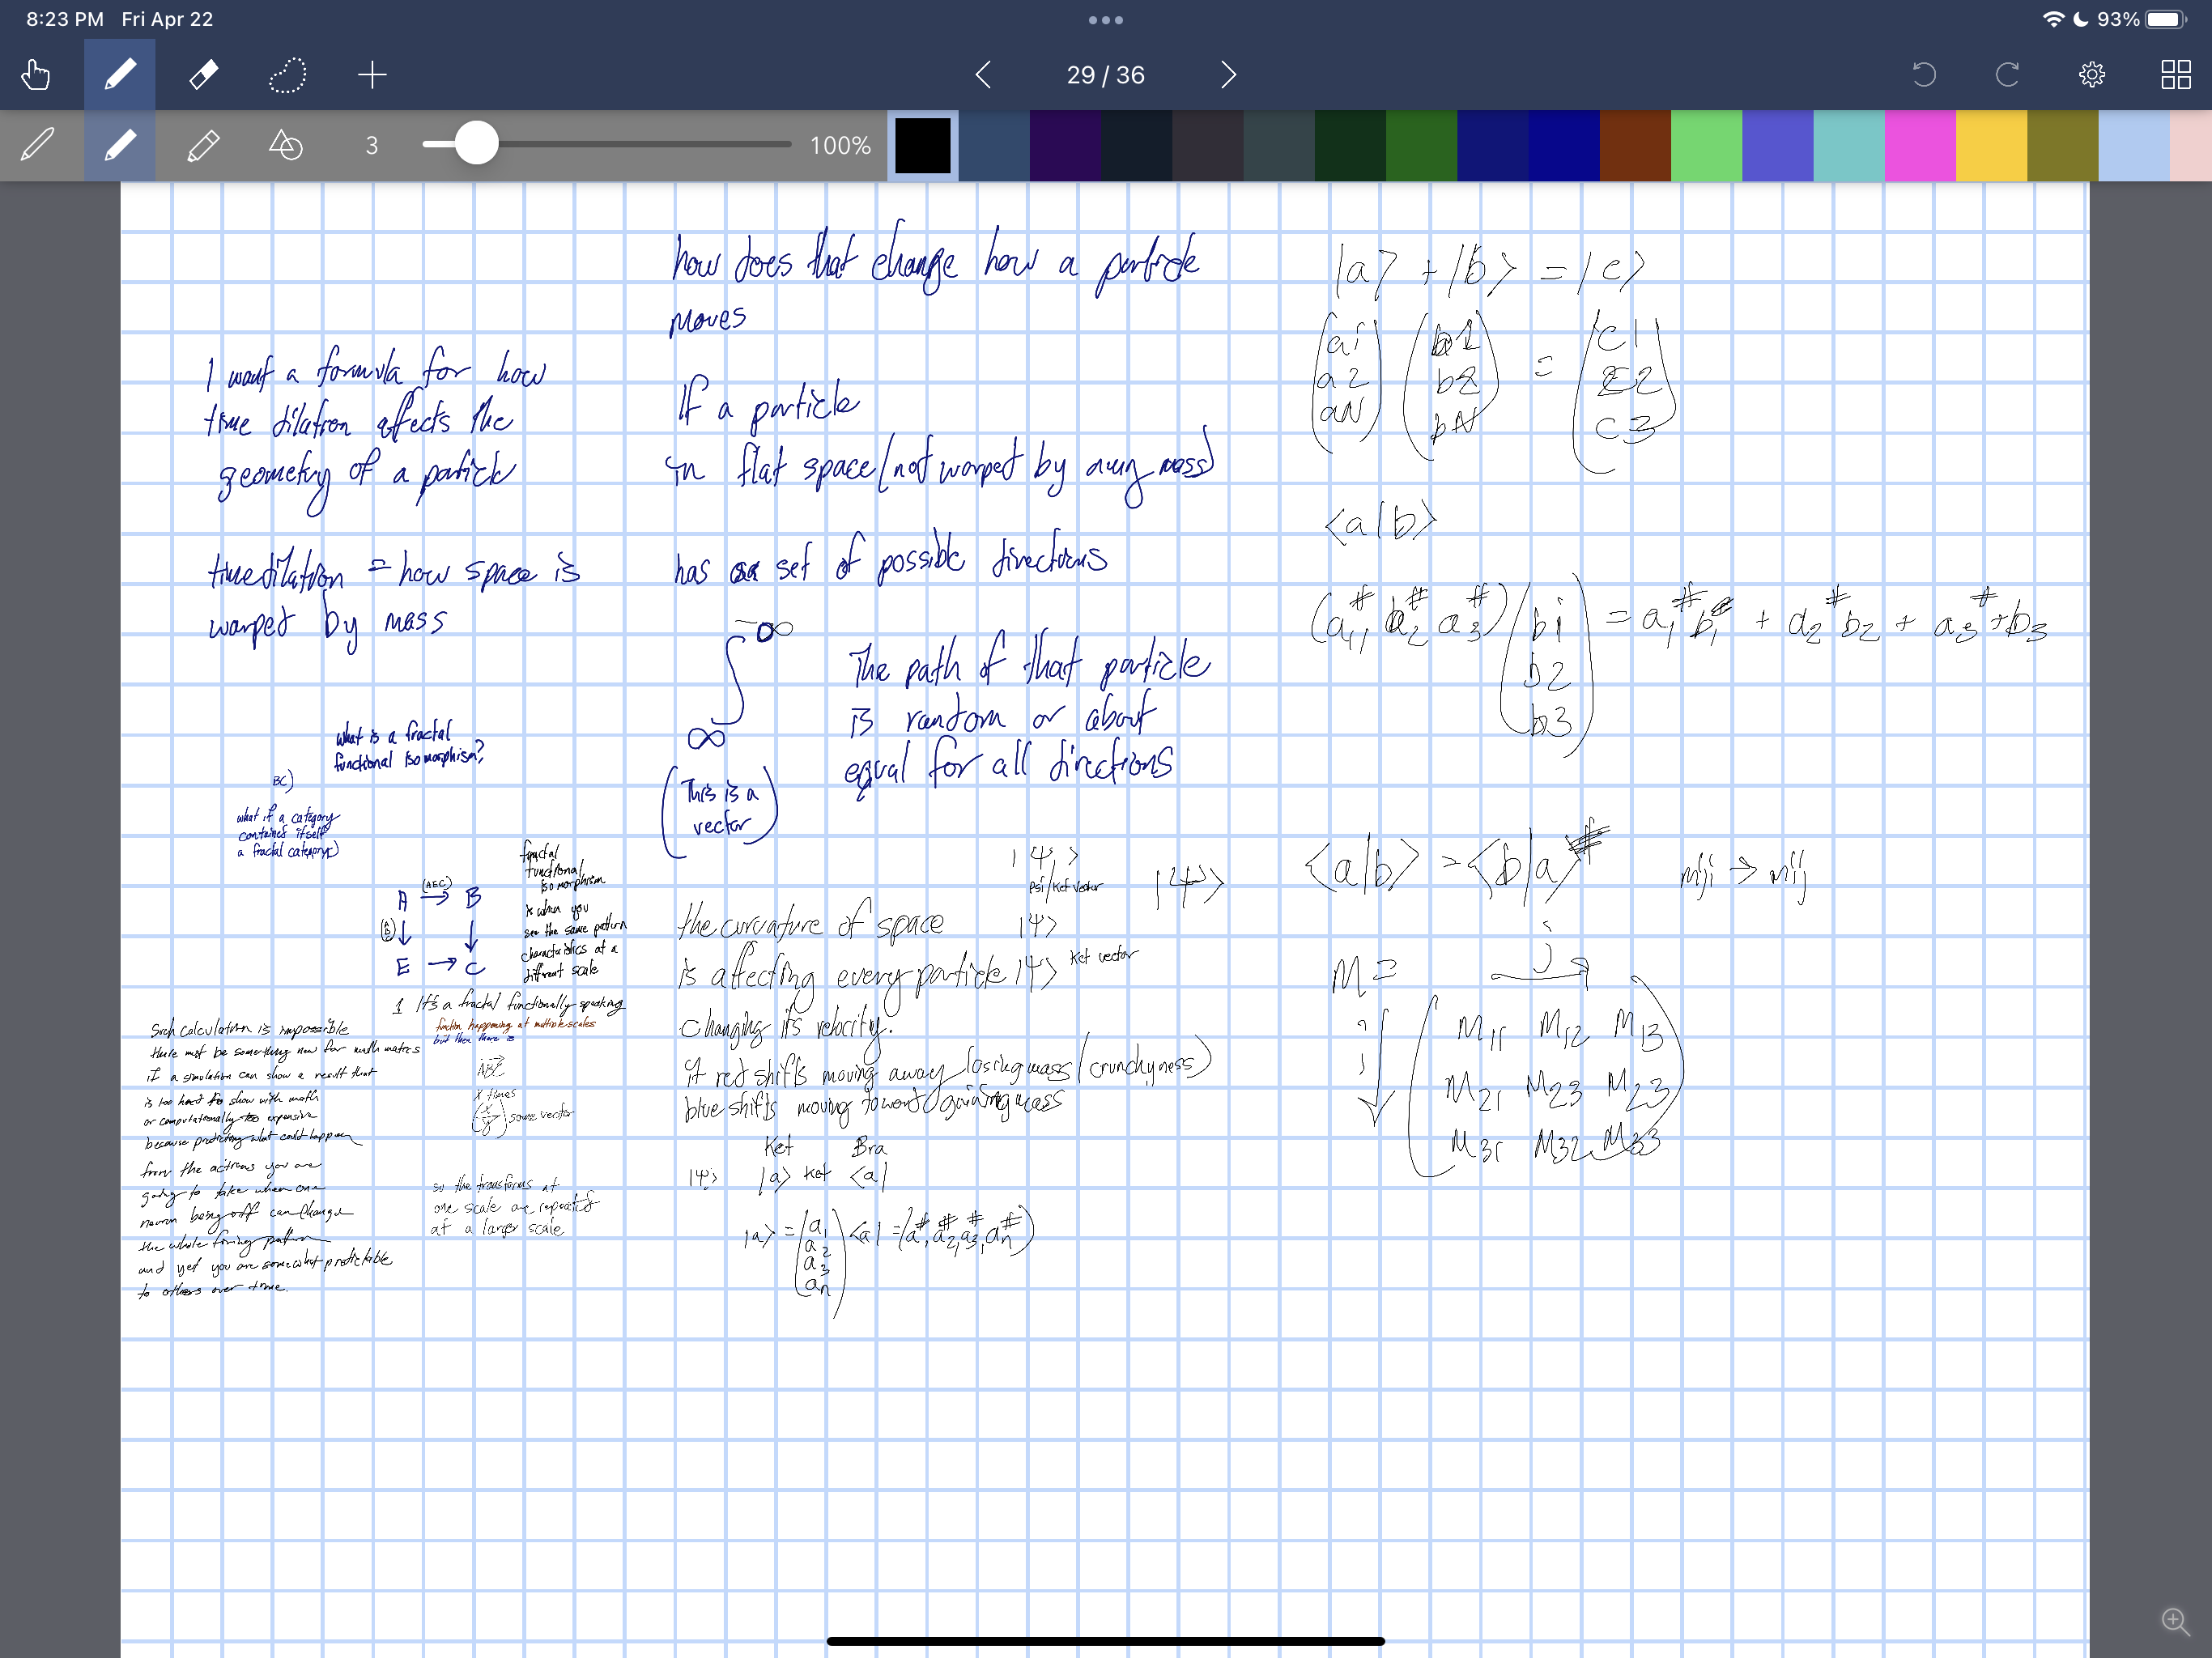 8:23 PM Fri Apr 22
93%
29 / 36
3
100%
I want a formula for how
time dilation affects the
geometry of a particle
time dilation = how space is
warped by mass
what is a fractal
functional isomorphism?
BC)
what if a category
contained itself
a fractal category)
A → B
↓ ↓
E → C
fractal
functional
isomorphism
is when you
see the same pattern
characteristics at a
different scale
1 It's a fractal functionally speaking
function happening at multiple scales
but then there is
ABC
X times
some vector
so the transforms at
one scale are repeated
at a larger scale
Such calculation is impossible
there must be something new for math matrcs
if a simulation can show a result that
is too hard to show with math
or computationally too expensive
because predicting what could happen
from the actions you are
going to take when one
neuron being off can change
the whole firing pattern
and yet you are somewhat predictable
to others over time.
how does that change how a particle
moves
If a particle
in flat space (not warped by any mass)
has a set of possible directions
-∞
∫
∞
(This is a
vector)
The path of that particle
is random or about
equal for all directions
|Ψ,>
psi/ket vector
|Ψ>
the curvature of space
|Ψ>
is affecting every particle |Ψ> Ket vector
changing its velocity.
if red shifts moving away losing mass (crunchyness)
blue shifts moving toward gaining mass
Ket Bra
|Ψ> |a> Ket <a|
|a> = (a1 a2 a3 an) <a| = (a#, a2#, a3#, an#)
|a> + |b> = |c>
(a1 (b1 = (c1
a2 b2 c2
aN) bN) c3)
<a|b>
(a1# a2# a3#) (b1 = a1# b1 + a2# b2 + a3# + b3
b2
b3)
<a|b> = <b|a>#
mji → mij
j
M =
i
M11 M12 M13
M21 M23 M23
M31 M32 M33